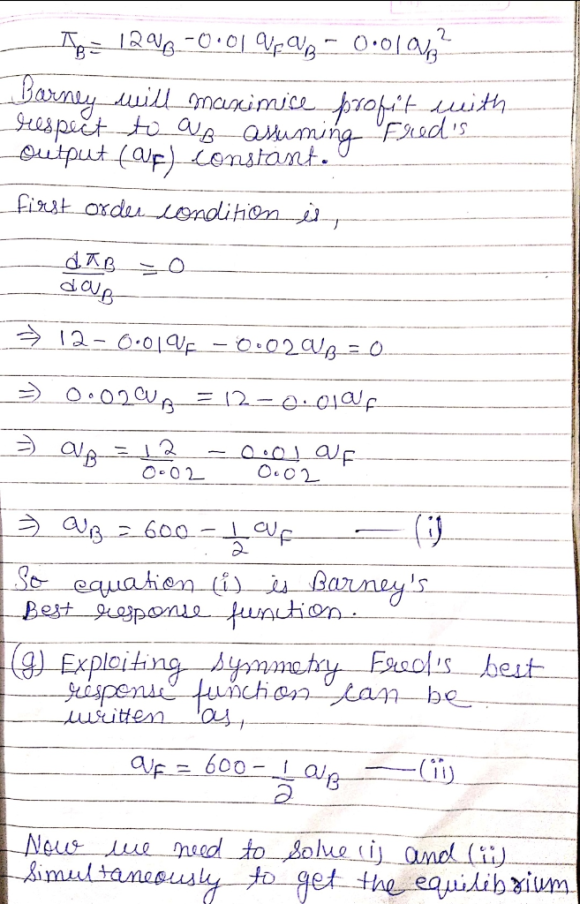 π_B = 12q_B - 0.01 q_F q_B - 0.01 q_B²
Barney will maximice profit with
respect to q_B assuming Fred's
output (q_F) constant.
First order condition is,
dπ_B/dq_B = 0
⇒ 12 - 0.01q_F - 0.02q_B = 0
⇒ 0.02q_B = 12 - 0.01q_F
⇒ q_B = 12/0.02 - 0.01/0.02 q_F
⇒ q_B = 600 - 1/2 q_F —(i)
So equation (i) is Barney's
Best response function.
(g) Exploiting symmetry Fred's best
response function can be
written as,
q_F = 600 - 1/2 q_B —(ii)
Now we need to solve (i) and (ii)
simultaneously to get the equilibrium